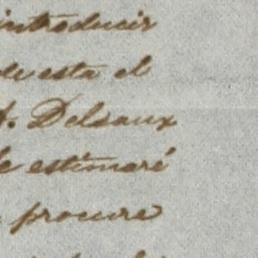 introducir
de esta el
A. Delsaux
le estimaré
procure